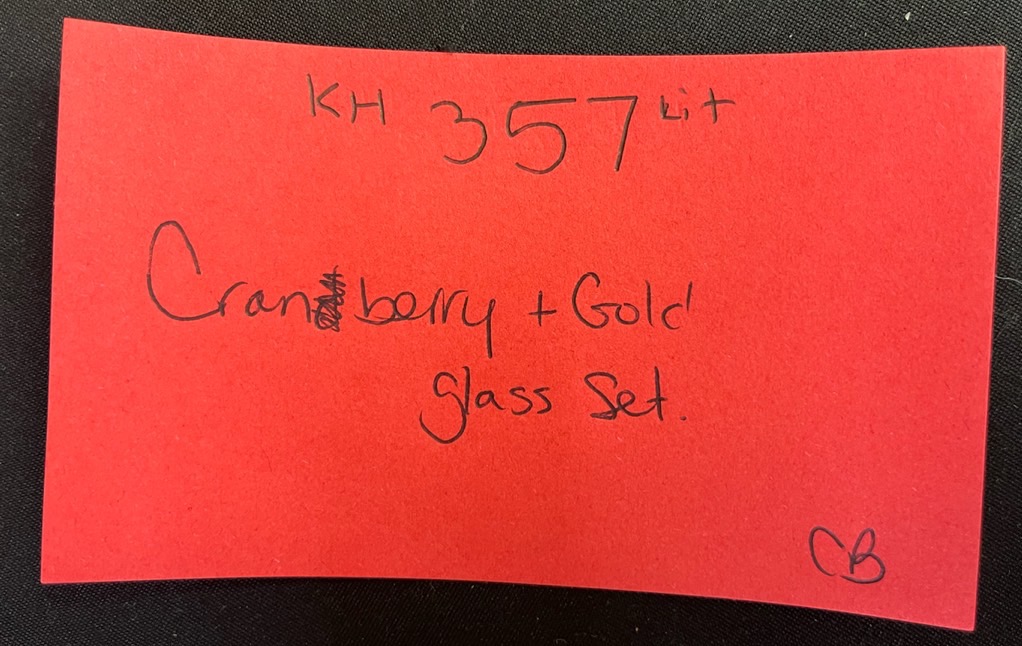 KH 357 Kit
Cranberry + Gold
glass Set.
CB